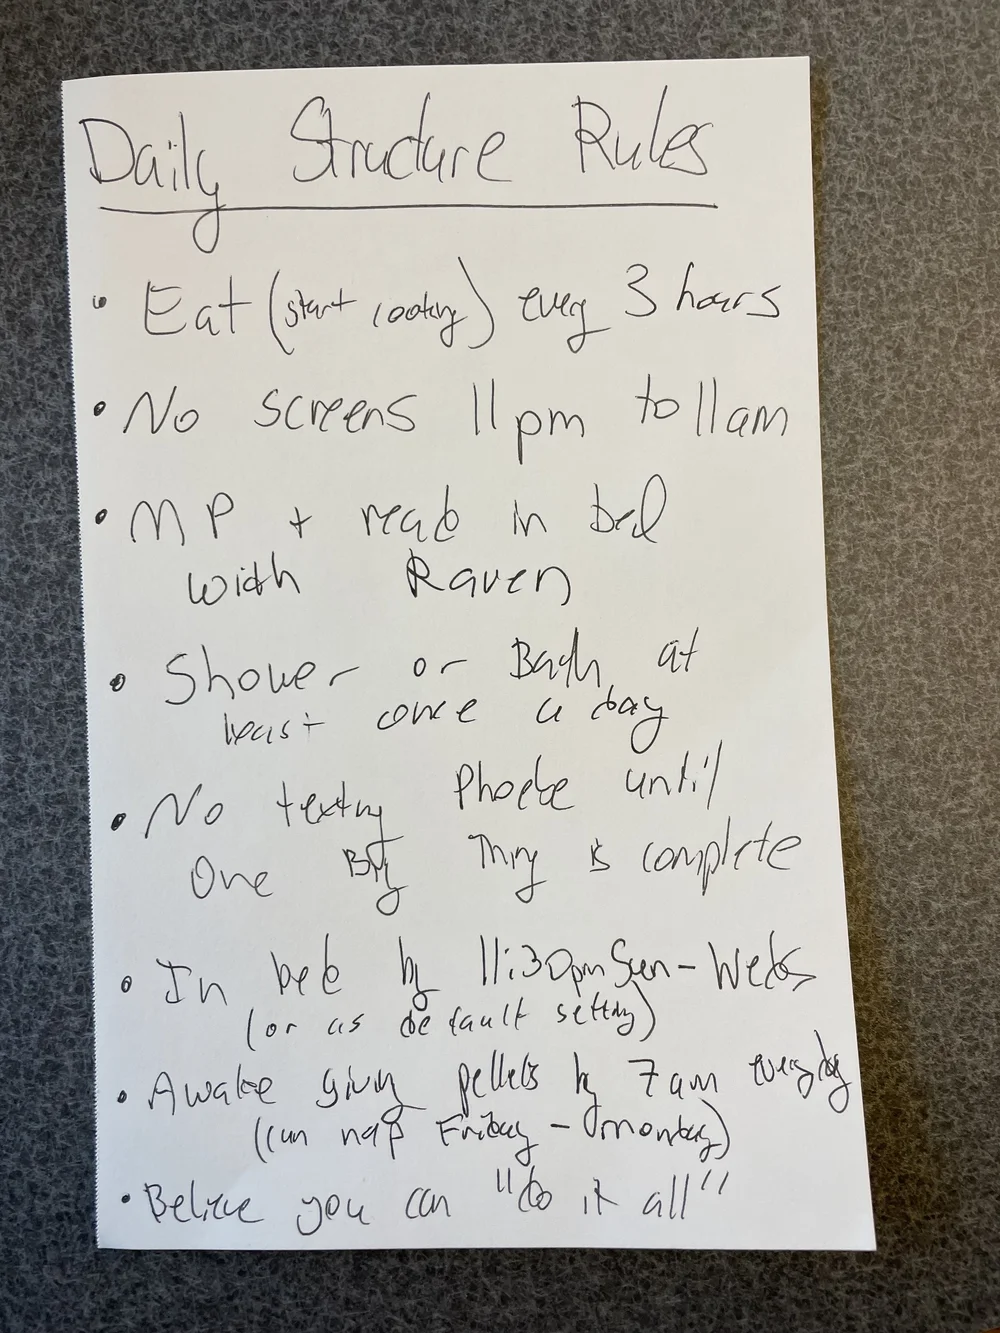 Daily Structure Rules
• Eat (start cooking) every 3 hours
• No screens 11pm to 11am
• MP + read in bed
with Raven
• Shower or Bath at
least once a day
• No texting Phoebe until
One Big Thing is complete
• In bed by 11:30pm Sun-Weds
(or as default setting)
• Awake giving pellets by 7am everyday
(can nap Friday - Monday)
• Believe you can "do it all"